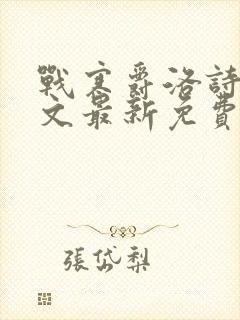 戰寒爵洛詩
文最新免費
張岱梨